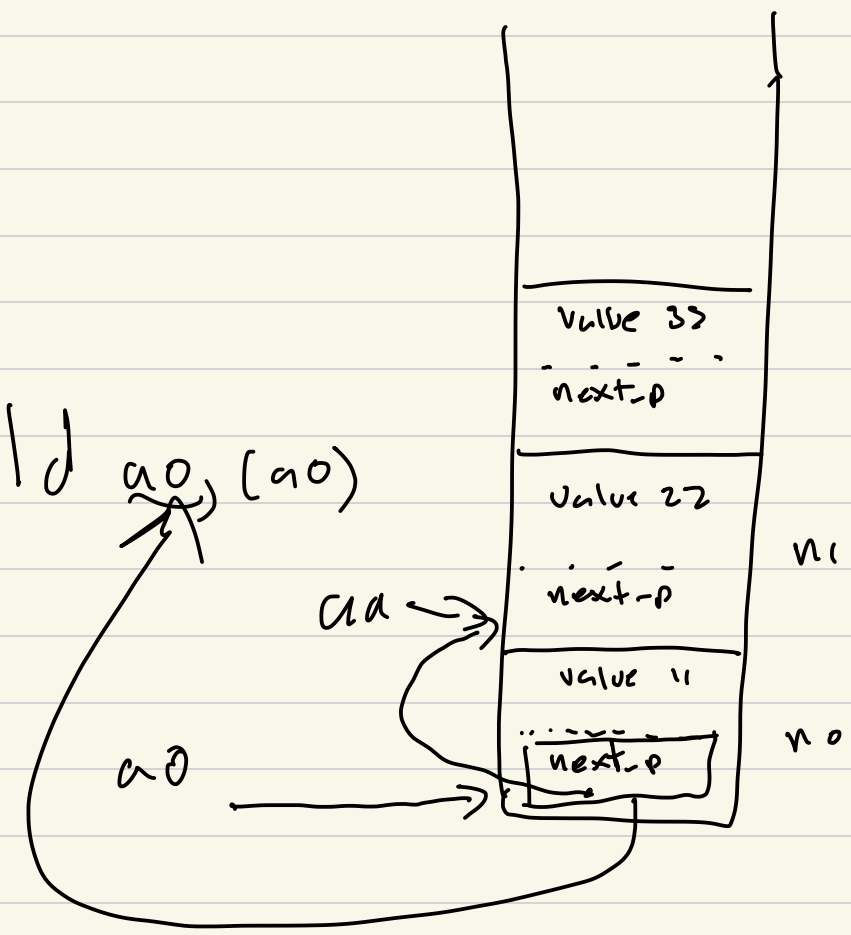 value 33
next_p
ld a0, (a0)
value 22
n1
next_p
aa
value 11
n0
next_p
a0